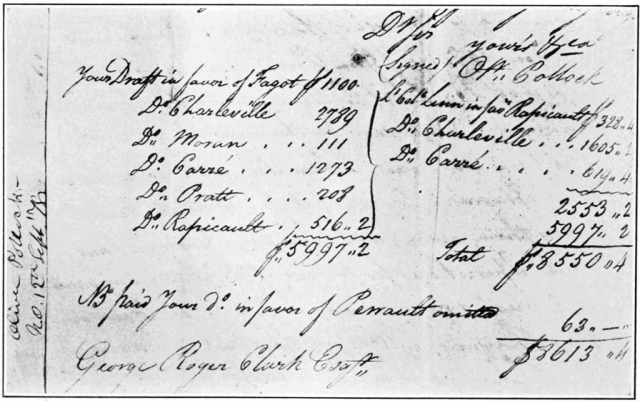 Dr Sir
yours &ca
Signed Olr. Pollock
Your Draft in favor of Fagot $ 1100
Do. Charleville 2789
Do. Moran . . 111
Do. Carré . . 1273
Do. Pratt . . . 208
Do. Rapicault . 516 ,, 2
$ 5997 ,, 2
Lt. Col. Linn in favr Rapicault $ 328 ,, 4
Do. Charleville . . . 1605 ,, 2
Do. Carré . . . . 619 ,, 4
2553 ,, 2
5997 ,, 2
Total $ 8550 ,, 4
NB paid Your do. in favor of Perrault omitted 63 ,, —
$ 8613 ,, 4
George Roger Clark Esqr.
Oliver Pollock